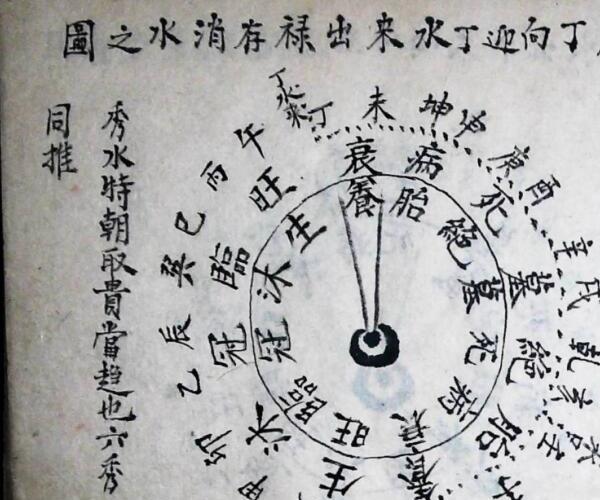 丁向迎丁水來出禄存消水之圖
秀水特朝取貴當趋也六秀
同推
丁水來
丁
未
坤
申
庚
酉
辛
戌
乾
亥
壬
午
丙
巳
巽
辰
乙
卯
甲
衰
病
死
墓
絕
胎
養
生
沐
冠
臨
旺
養
胎
絕
墓
死
病
衰
旺
臨
冠
沐
生